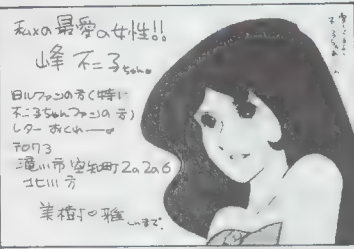 私の最愛の女性!!
峰 不二子ちゃん。
旧ルファンの方(特に
不二子ちゃんファンの方)
レター おくれ——。
〒073
滝川市空知町2a2a6
北川方
美樹 雅
まで。